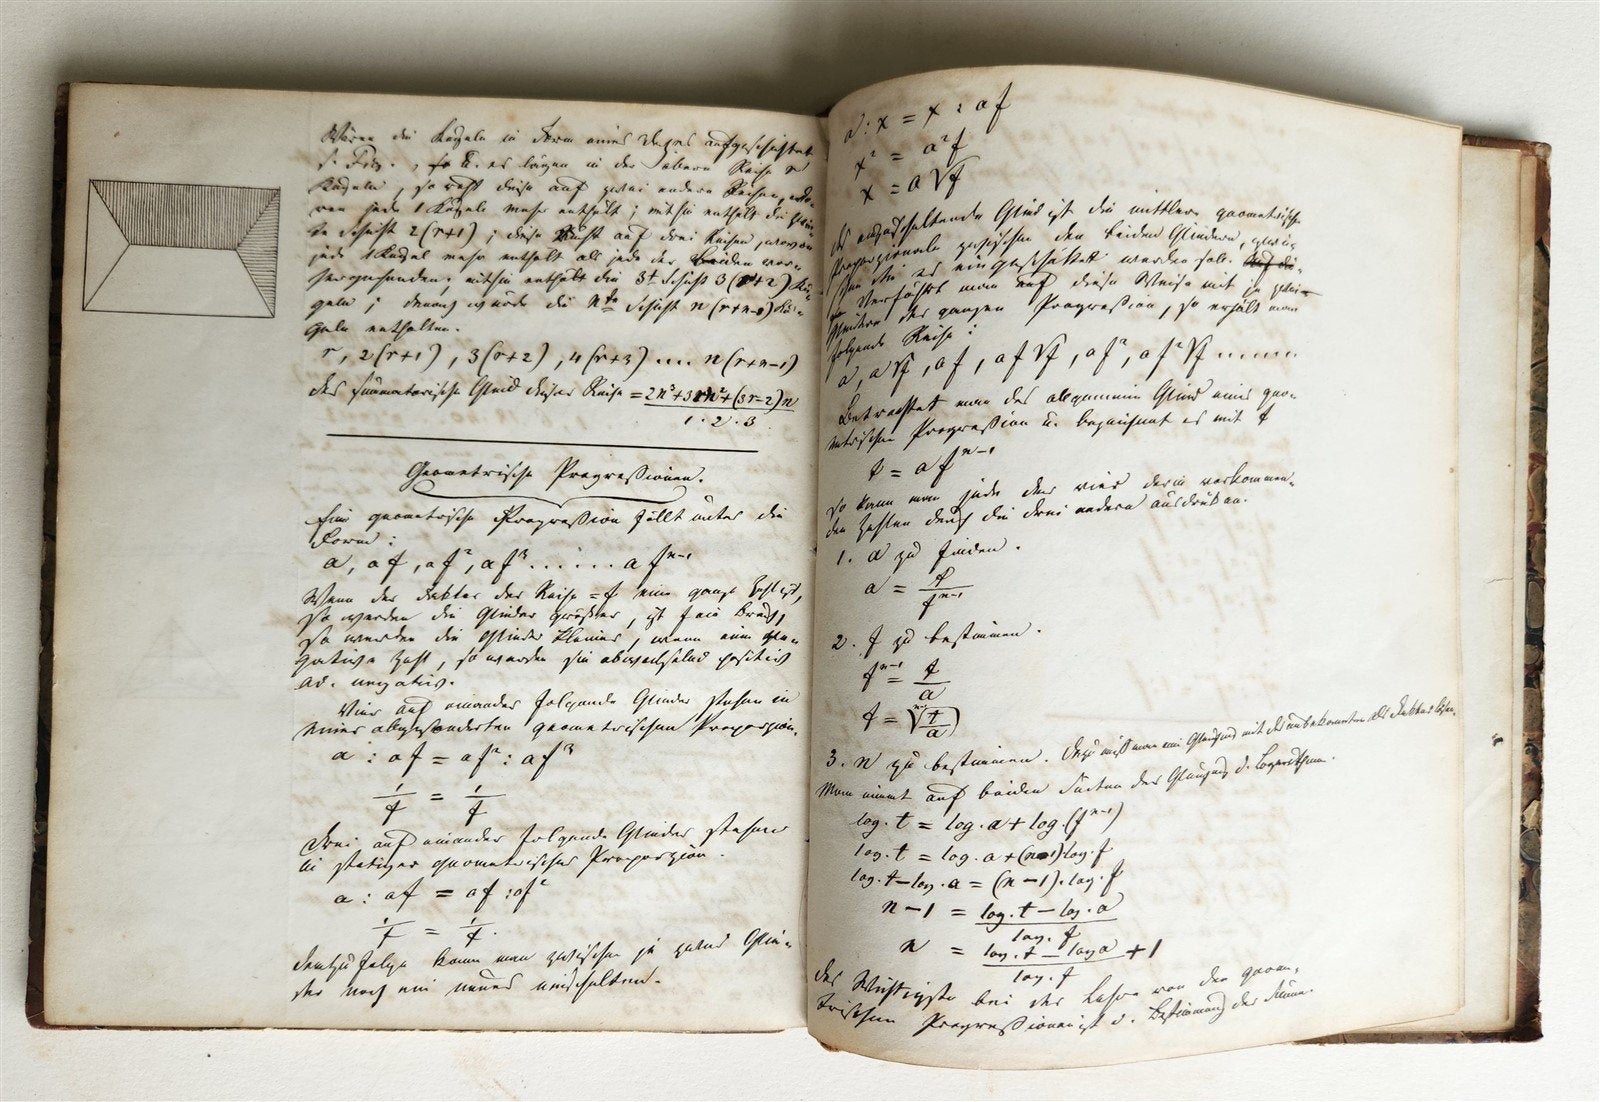 Wären die Kugeln in Form eines Daches aufgeschichtet
s. Fig. , so d. es lägen in der obern Reihe r
Kugeln, so ruht diese auf zwei andern Reihen, wo-
von jede 1 Kugel mehr enthält; mithin enthält die zwei-
te Schicht 2(r+1); diese ruht auf drei Reihen, wovon
jede 1 Kugel mehr enthält als jede der beiden vor-
hergehenden; mithin enthält die 3t Schicht 3(r+2) Ku-
geln; demnach würde die nte Schicht n(r+n-1) Ku-
geln enthalten.
r, 2(r+1), 3(r+2), 4(r+3) .... n(r+n-1)
Das summatorische Glied dieser Reihe = 2n³+3rn²+(3r-2)n
1 · 2 · 3
Geometrische Progressionen.
Eine geometrische Progression fällt unter die
Form:
a, af, af², af³ ...... afⁿ⁻¹
Wenn der Faktor der Reihe = f eine ganze Zahl ist,
so werden die Glieder größer, ist f ein Bruch,
so werden die Glieder kleiner, wenn eine ne-
gative Zahl, so werden sie abwechselnd positiv
od. negativ.
Vier auf einander folgende Glieder stehen in
einer abgesonderten geometrischen Proporzion.
a : af = af² : af³
1/f = 1/f
Drei auf einander folgende Glieder stehen
in stetiger geometrischer Proporzion.
a : af = af : af²
1/f = 1/f.
Demzufolge kann man zwischen je zwei Glie-
der noch ein neues einschalten.
a : x = x : af
x² = a²f
x = a√f
Das einzuschaltende Glied ist die mittlere geometrische
Proporzionale zwischen den beiden Gliedern, zwi-
schen die es eingeschaltet werden soll.
Verfährt man auf diese Weise mit je zwei
Gliedern der ganzen Progression, so erhält man
folgende Reihe:
a, a√f, af, af√f, af², af²√f ......
Betrachtet man das allgemeine Glied einer geo-
metrischen Progression u. bezeichnet es mit t
t = afⁿ⁻¹
so kann man jede der vier darin vorkommen-
den Zahlen durch die drei andern ausdrücken.
1. a zu finden.
a = t/fⁿ⁻¹
2. f zu bestimmen.
fⁿ⁻¹ = t/a
f = ⁿ⁻¹√(t/a)
3. n zu bestimmen. Dazu muß man eine Gleichung mit der unbekannten als Faktor lösen.
Man nimmt auf beiden Seiten der Gleichung d. Logarithmen.
log. t = log. a + log. (fⁿ⁻¹)
log. t = log. a + (n-1) log. f
log. t - log. a = (n-1). log. f
n-1 = log. t - log. a / log. f
n = log. t - log a / log. f + 1
Das Wichtigste bei der Lehre von den geome-
trischen Progressionen ist d. Bestimmung der Summe.